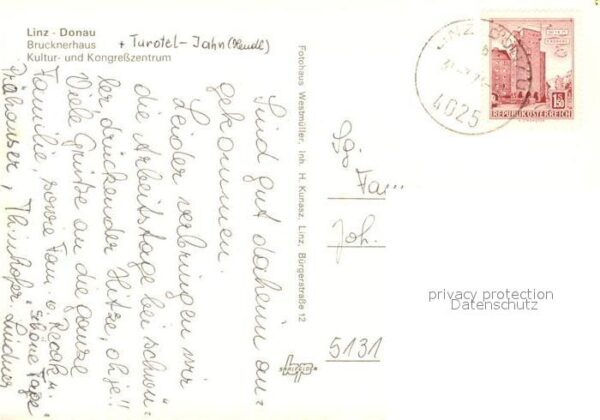 Linz - Donau
Brucknerhaus + Turotel-Jahn (Hendl)
Kultur- und Kongreßzentrum
Sind gut daheim an-
gekommen.
Leider verbringen wir
die Arbeitstage bei schwü-
ler drückender Hitze, oh je!!
Viele Grüße an die ganze
Familie, sowie Fam. v.
Schöne Tage
Lindner
Fotohaus Westmüller, Inh. H. Kunasz, Linz, Bürgerstraße 12
Sg.
Fam...
Joh.
5131
LINZ
4025
1.50
REPUBLIK ÖSTERREICH
privacy protection
Datenschutz